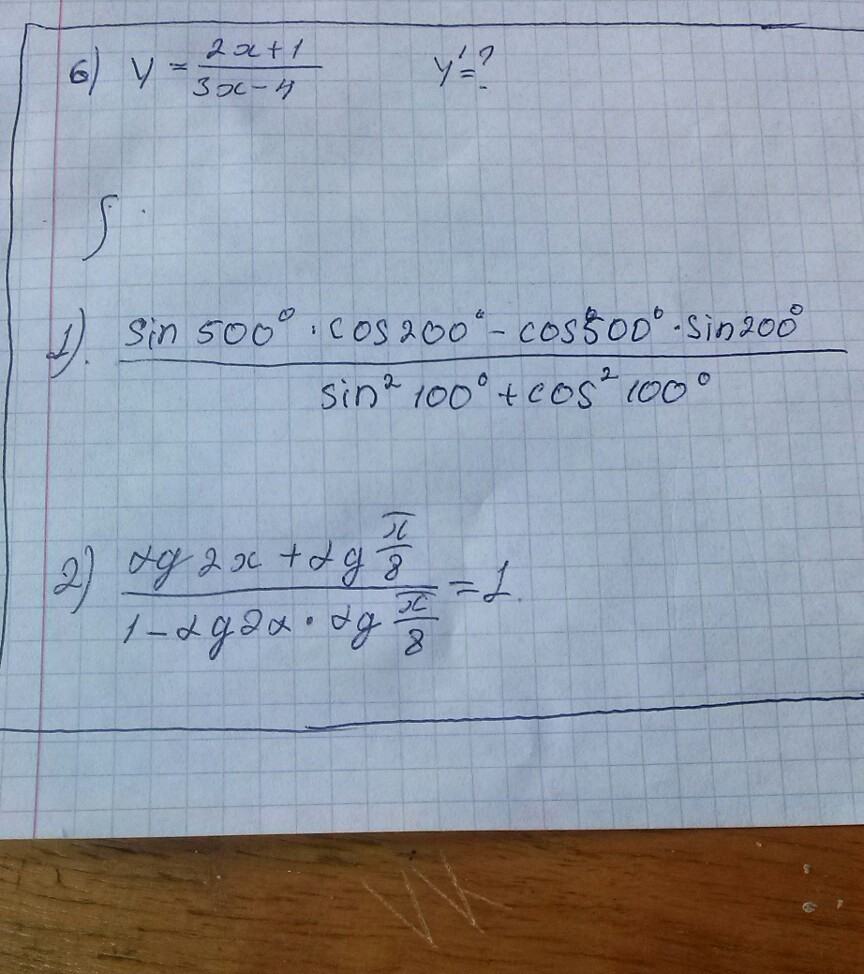 6) y = (2x+1)/(3x-4) y'=?
∫
1). (sin 500° · cos 200° - cos 500° · sin 200°)/(sin² 100° + cos² 100°)
2) (tg 2x + tg π/8)/(1 - tg 2x · tg π/8) = 1.